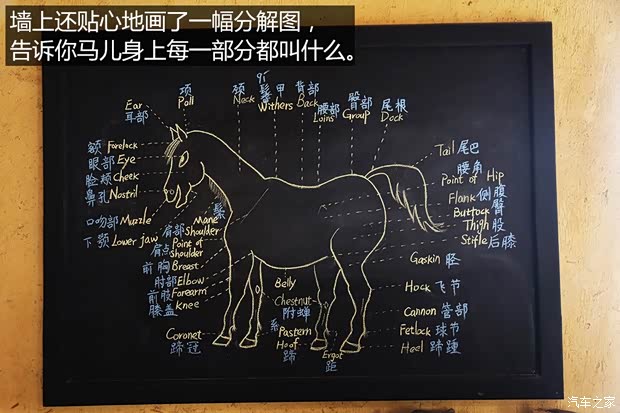 墙上还贴心地画了一幅分解图，
告诉你马儿身上每一部分都叫什么。
Ear
耳部
项
Poll
颈
Neck
髻甲
Withers
背部
Back
腰部
Loins
臀部
Group
尾根
Dock
Tail 尾巴
额 Forelock
眼部 Eye
脸颊 Cheek
鼻孔 Nostril
口吻部 Muzzle
下颚 Lower jaw
Mane
鬃
肩部 Shoulder
肩点 Point of
Shoulder
前胸 Breast
肘部 Elbow
前肢 Forearm
膝盖 Knee
Coronet
蹄冠
Belly
Chestnut
附蝉
系 Pastern
Hoof
蹄
Ergot
距
腰角
Point of Hip
Flank 侧腹
Buttock 臀
Thigh 股
Stifle 后膝
Gaskin 胫
Hock 飞节
Cannon 管部
Fetlock 球节
Heel 蹄踵
汽车之家